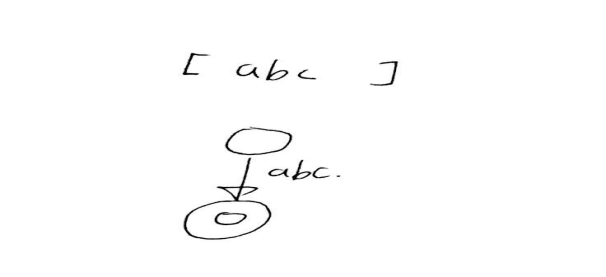 [ abc ]
abc.